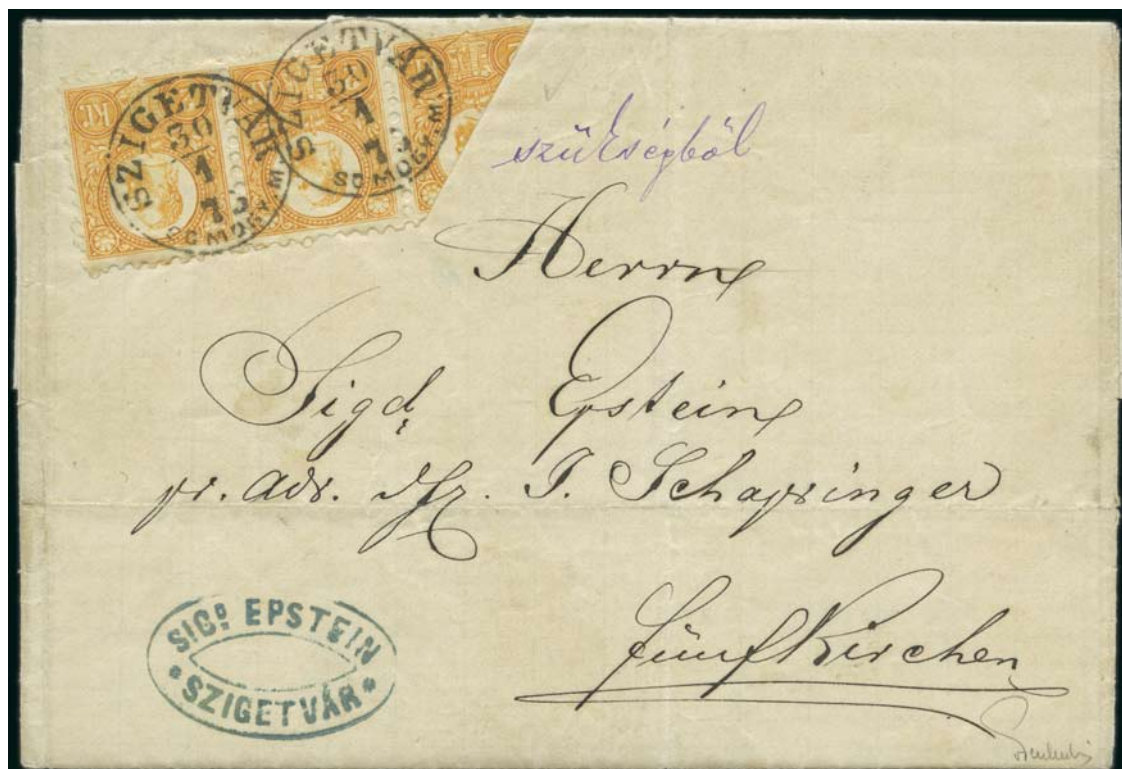 KR
SZIGETVÁR
30
1
73
SOMOGY M.
SZIGETVÁR
30
1
73
SOMOGY M.
szükségböl
Herrn
Sigd Epstein
pr. adr. I. Schapringer
Fünfkirchen
SIGD EPSTEIN
* SZIGETVÁR *